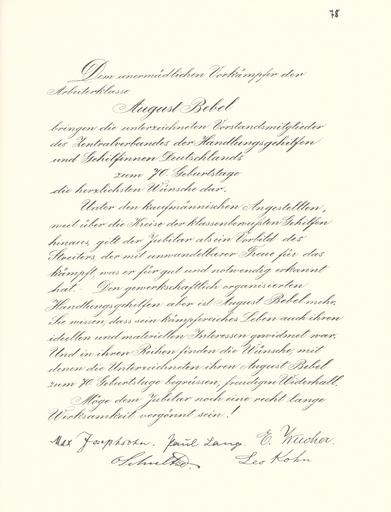 78
Dem unermüdlichen Vorkämpfer der
Arbeiterklasse
August Bebel
bringen die unterzeichneten Vorstandsmitglieder
des Zentralverbandes der Handlungsgehilfen
und Gehilfinnen Deutschlands
zum 70. Geburtstage
die herzlichsten Wünsche dar.
Unter den kaufmännischen Angestellten,
weit über die Kreise der klassenbewußten Gehilfen
hinaus, gilt der Jubilar als ein Vorbild des
Streiters, der mit unwandelbarer Treue für das
kämpft, was er für gut und notwendig erkannt
hat. Den gewerkschaftlich organisierten
Handlungsgehilfen aber ist August Bebel mehr.
Sie wissen, dass sein kämpfreiches Leben auch ihren
ideellen und materiellen Interessen gewidmet war.
Und in ihren Reihen finden die Wünsche, mit
denen die Unterzeichneten ihren August Bebel
zum 70 Geburtstage begrüssen, freudigen Widerhall.
Möge dem Jubilar noch eine recht lange
Wirksamkeit vergönnt sein!
Max Josephsohn. Paul Lange E.
Leo Kohn